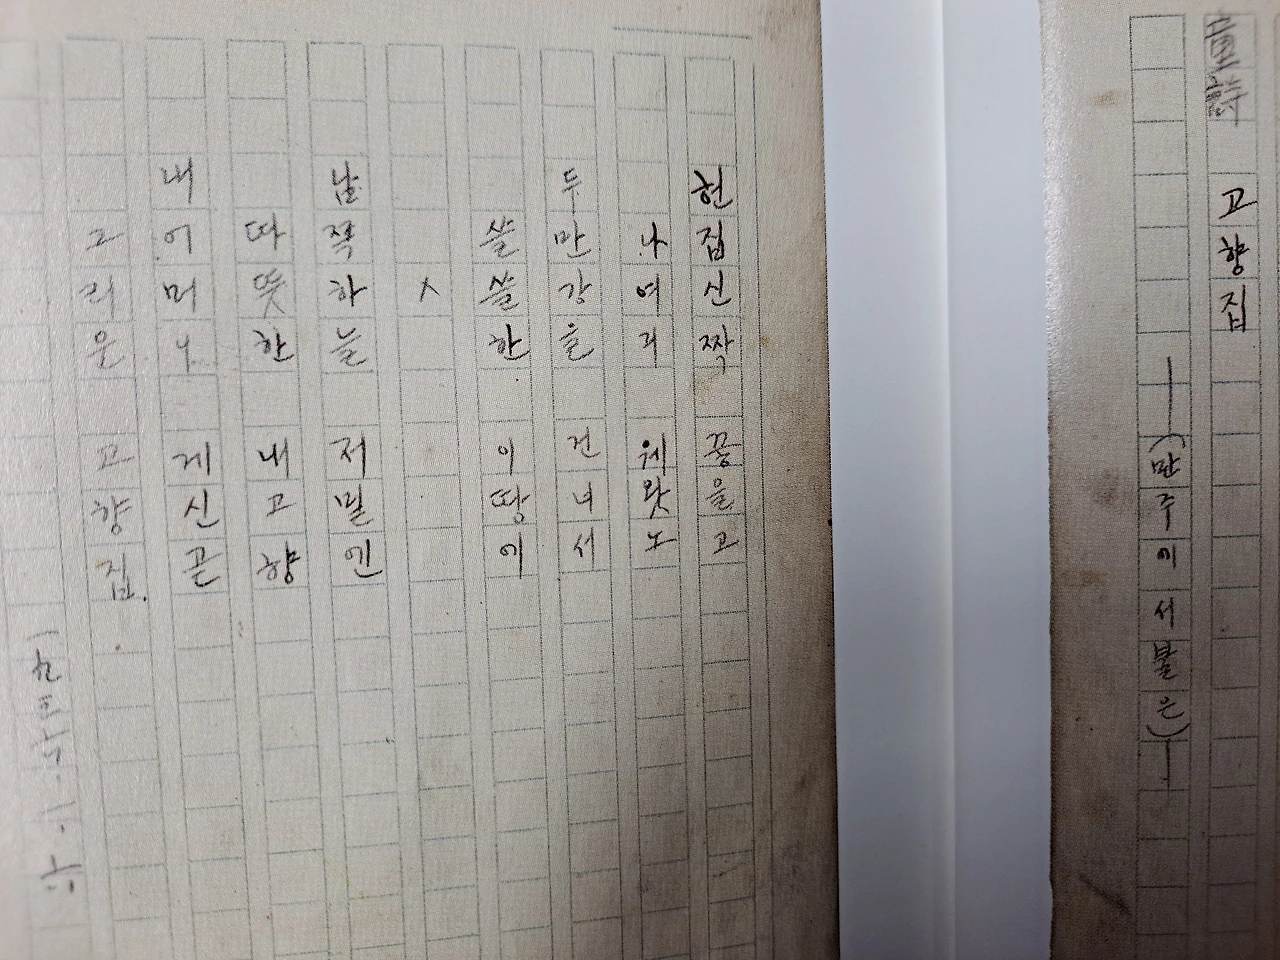 童詩
고향집
—(만주에서불은)—
헌집신짝 끟을고
나여긔 웨왓노
두만강을 건너서
쓸쓸한 이땅에
×
남쪽하늘 저밑엔
따뜻한 내고향
내어머니 게신곧
그리운 고향집.